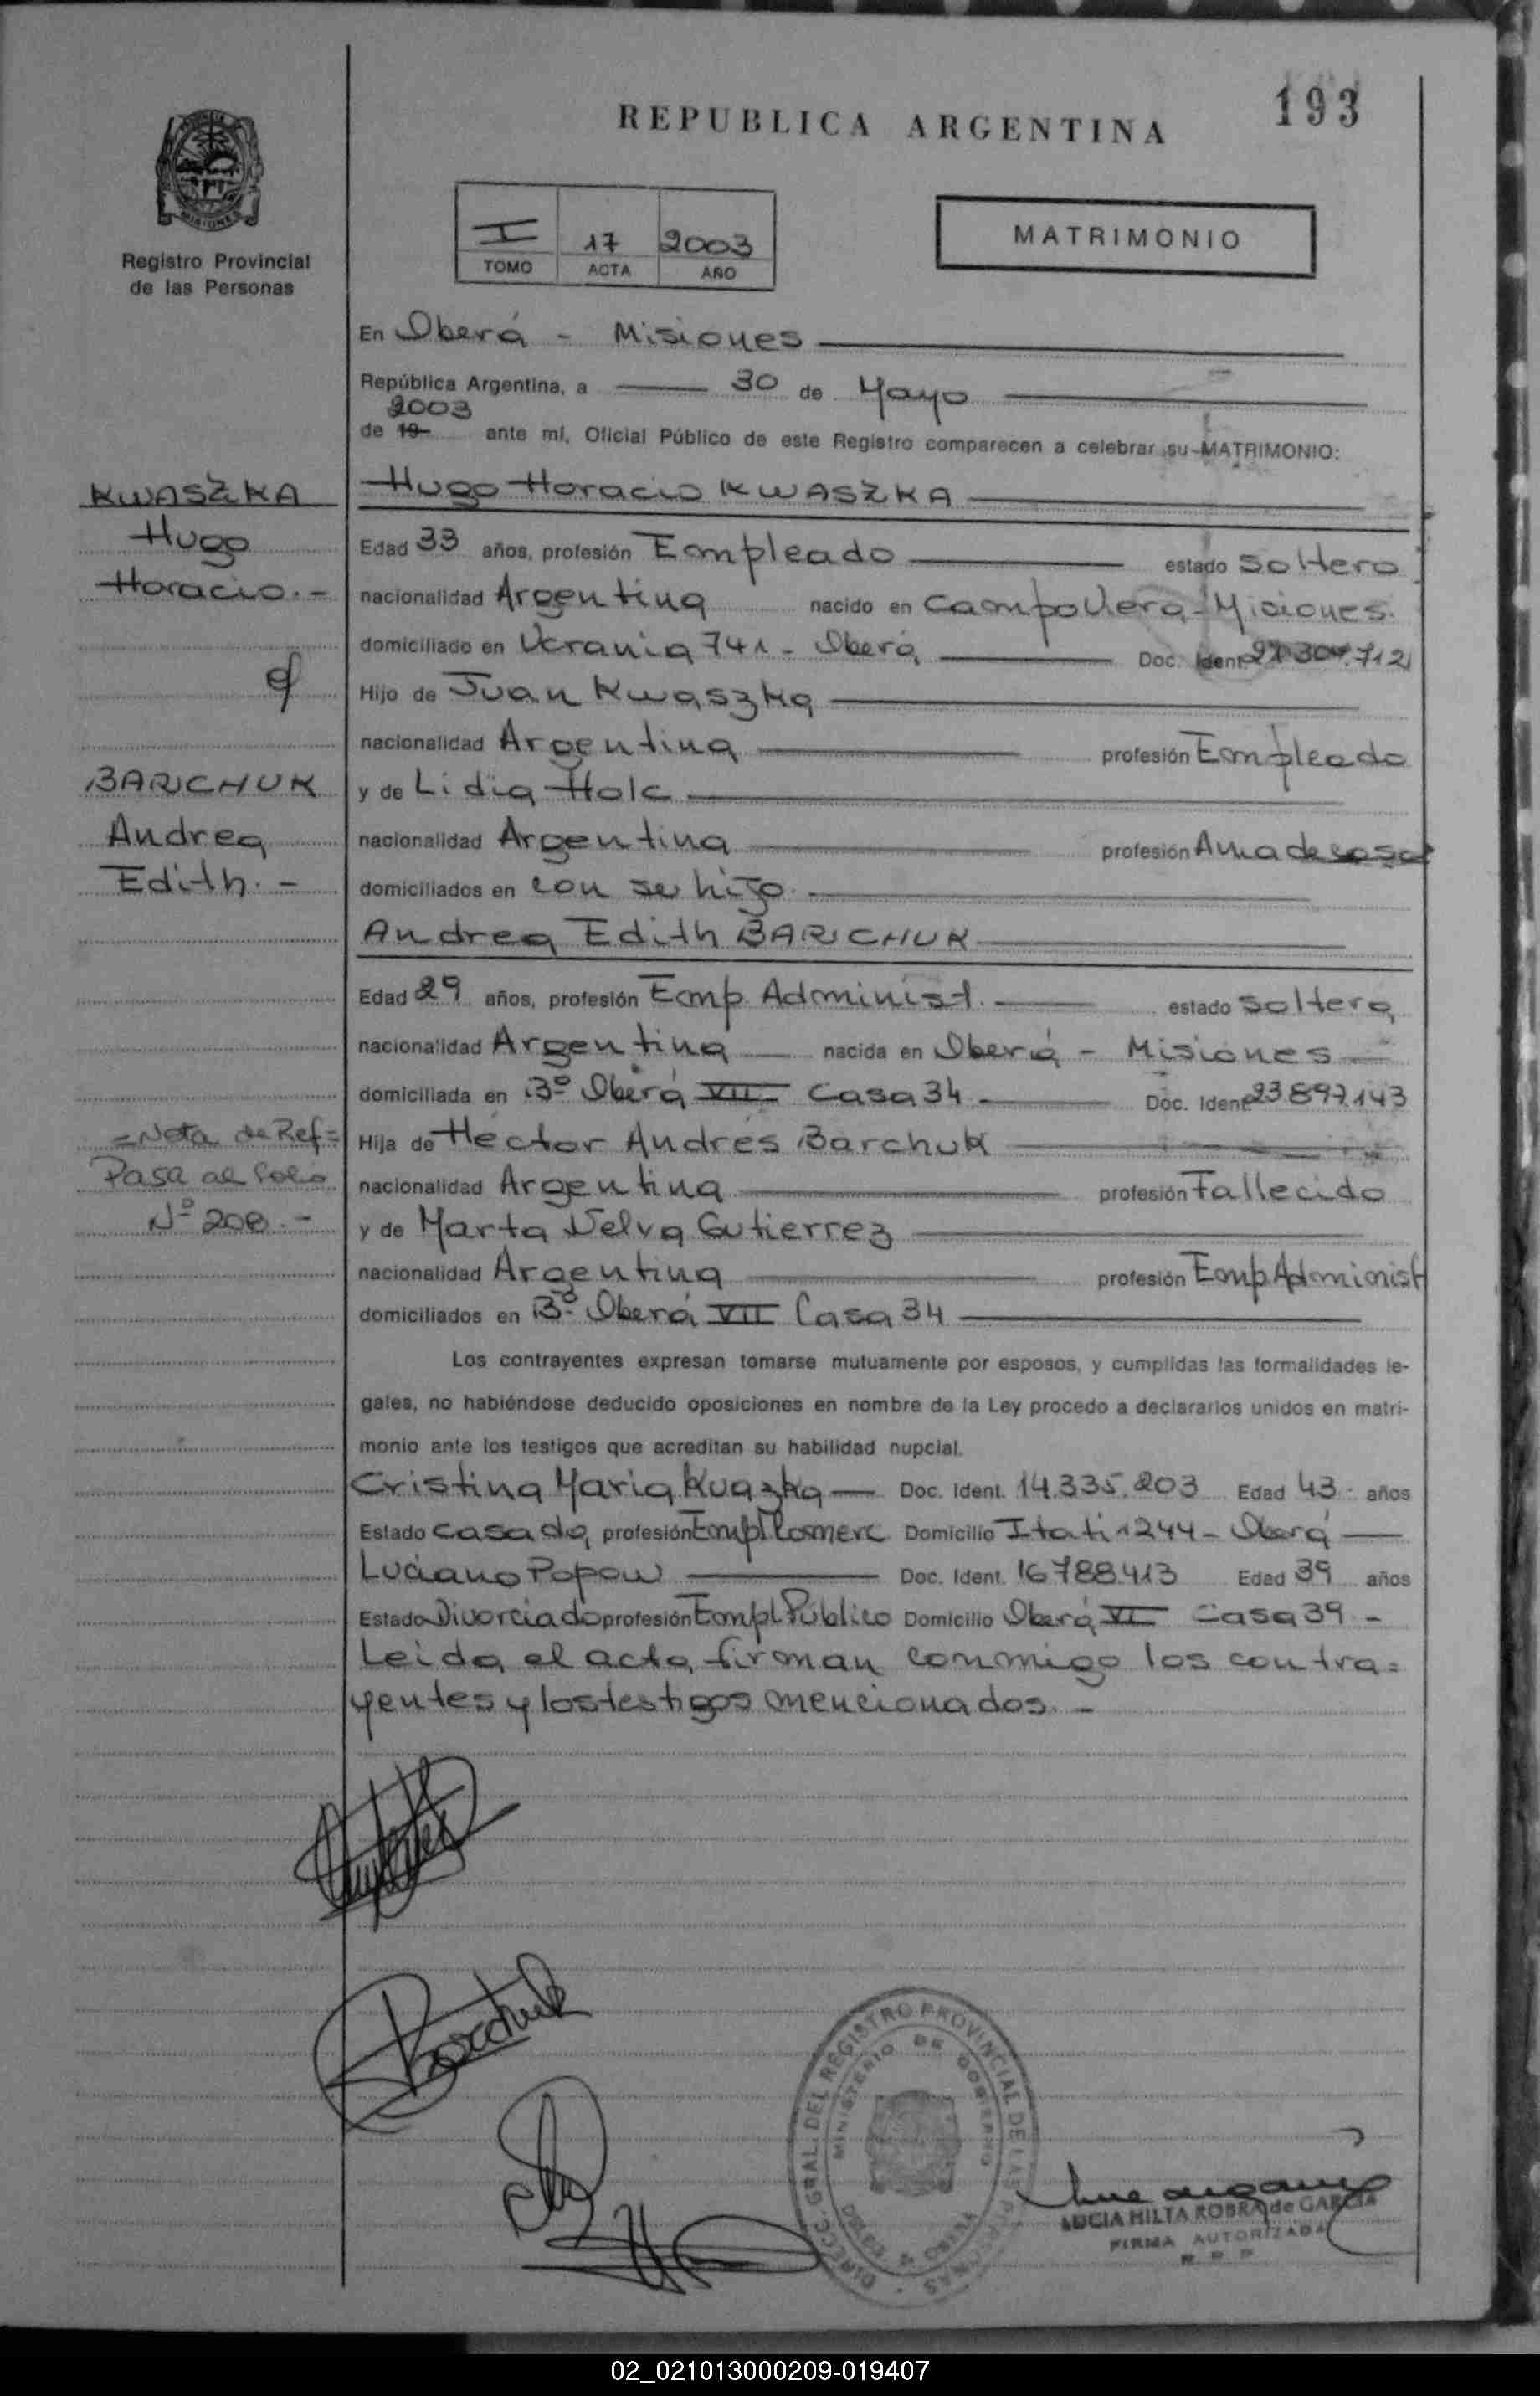 193
REPUBLICA ARGENTINA
MISIONES
Registro Provincial
de las Personas
I 17 2003
TOMO ACTA AÑO
MATRIMONIO
En Oberá - Misiones
República Argentina, a 30 de Mayo
2003
de 19 ante mí, Oficial Público de este Registro comparecen a celebrar su MATRIMONIO:
KWASZKA
Hugo
Horacio.-
BARICHUK
Andrea
Edith.-
=Nota de Ref=
Pasa al folio
Nº 208.-
Hugo Horacio KWASZKA
Edad 33 años, profesión Empleado estado Soltero
nacionalidad Argentina nacido en Campo Viera-Misiones.
domiciliado en Ucrania 741 - Oberá Doc. Ident 712
Hijo de Juan Kwaszka
nacionalidad Argentina profesión Empleado
y de Lidia Holc
nacionalidad Argentina profesión Ama de casa
domiciliados en con su hijo.
Andrea Edith BARICHUK
Edad 29 años, profesión Emp. Administ. estado Soltera
nacionalidad Argentina nacida en Oberá - Misiones
domiciliada en Bº Oberá VII Casa 34 Doc. Ident 23.897.143
Hija de Hector Andrés Barchuk
nacionalidad Argentina profesión Fallecido
y de Marta Nelva Gutierrez
nacionalidad Argentina profesión Emp. Administ
domiciliados en Bº Oberá VII Casa 34
Los contrayentes expresan tomarse mutuamente por esposos, y cumplidas las formalidades le-
gales, no habiéndose deducido oposiciones en nombre de la Ley procedo a declararlos unidos en matri-
monio ante los testigos que acreditan su habilidad nupcial.
Cristina Maria Kuazka Doc. Ident. 14.335.203 Edad 43 años
Estado Casada, profesión Empl Comerc Domicilio Itati 1244 - Oberá
Luciano Popow Doc. Ident. 16788413 Edad 39 años
Estado Divorciado profesión Empl Público Domicilio Oberá VI Casa 39 -
Leida el acta, firman conmigo los contra=
yentes y los testigos mencionados.-
Barchuk
DIRECC. GRAL. DEL REGISTRO PROVINCIAL DE LAS PERSONAS
MINISTERIO DE GOBIERNO
LUCIA HILTA ROBRA de GARCIA
FIRMA AUTORIZADA
R P P
02_021013000209-019407